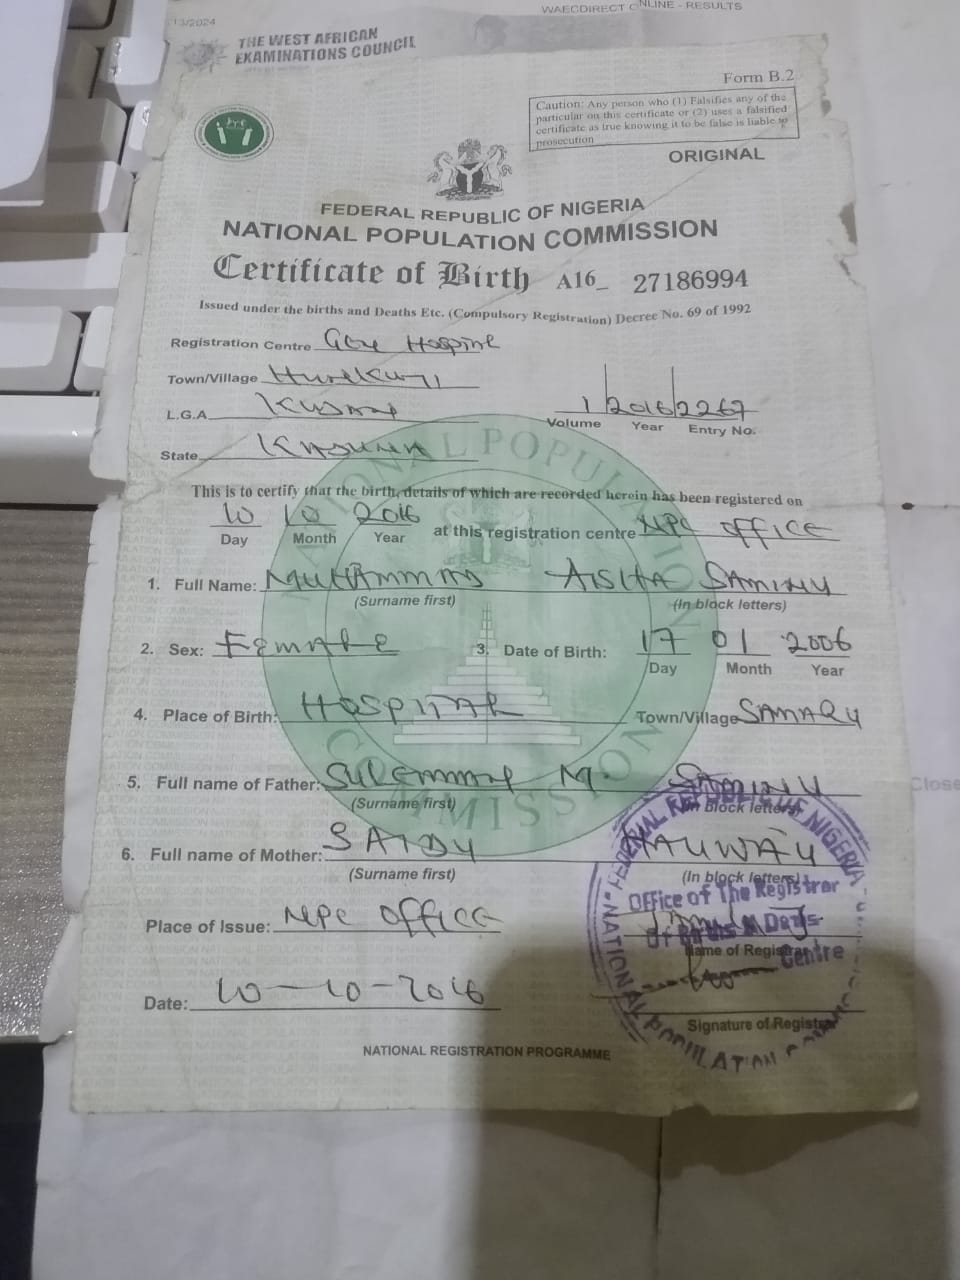 WAECDIRECT ONLINE - RESULTS
13/2024
THE WEST AFRICAN
EXAMINATIONS COUNCIL
Form B.2
Caution: Any person who (1) Falsifies any of the
particular on this certificate or (2) uses a falsified
certificate as true knowing it to be false is liable to
prosecution
ORIGINAL
FEDERAL REPUBLIC OF NIGERIA
NATIONAL POPULATION COMMISSION
Certificate of Birth A16_ 27186994
Issued under the births and Deaths Etc. (Compulsory Registration) Decree No. 69 of 1992
Registration Centre
Town/Village
L.G.A.
1 2016 2267
Volume Year Entry No.
State
This is to certify that the birth, details of which are recorded herein has been registered on
10 10 2016 at this registration centre NPC OFFICE
Day Month Year
1. Full Name: MUHAMMAD AISHA SAMINU
(Surname first) (In block letters)
2. Sex: FEMALE 3. Date of Birth: 17 01 2006
Day Month Year
4. Place of Birth: HOSPITAL Town/Village SAMARU
5. Full name of Father: M. SAMINU
(Surname first) In block letters
6. Full name of Mother: SAIDU HAUWAU
(Surname first) (In block letters)
Place of Issue: NPC OFFICE
Name of Registrar
Date: 10-10-2016
Signature of Registrar
NATIONAL REGISTRATION PROGRAMME
NATIONAL POPULATION COMMISSION
FEDERAL REPUBLIC OF NIGERIA
Office of The Registrar
Of Births
Centre
Close